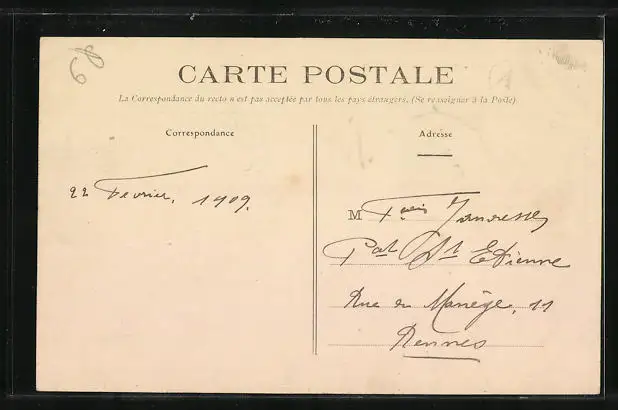 CARTE POSTALE
La Correspondance du recto n'est pas acceptée par tous les pays étrangers. (Se renseigner à la Poste)
Correspondance
Adresse
22 Février, 1909.
M
Pat St Etienne
Rue du Manège, 11
Rennes